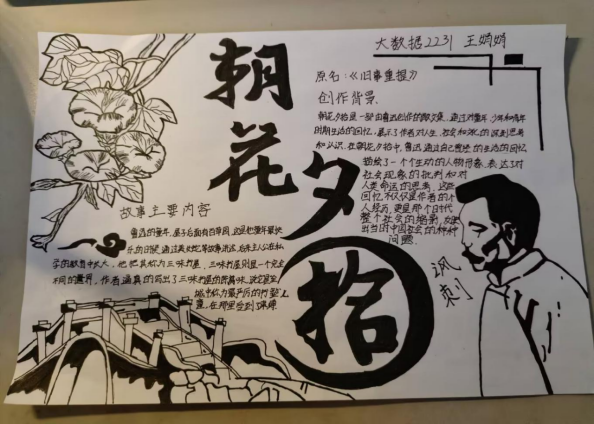 大数据2231 王娟娟
朝花夕拾
原名:《旧事重提》
创作背景
朝花夕拾是一部由鲁迅创作的散文集,通过对童年、少年和青年
时期生活的回忆,展示了作者对人生、社会和文化的深刻思考
和认识。在朝花夕拾中,鲁迅通过自己曾经的生活的回忆
描绘了一个个生动的人物形象,表达了对
社会现象的批判和对
人类命运的思考,这些
回忆不仅仅是作者的个
人经历,更是那个时代
整个社会的缩影,
出当时中国社会的种种
问题.
讽刺
故事主要内容
鲁迅的童年,屋子后面有百草园,这是他童年最快
乐的日子,通过美女蛇等故事讲述,后来主人公在私
学的教导中长大,他把其称为三味书屋,三味书屋则是一个完全
不同的,作者逼真的写出了三味书屋的
城中称为最严厉的书塾
里,在那里受到了